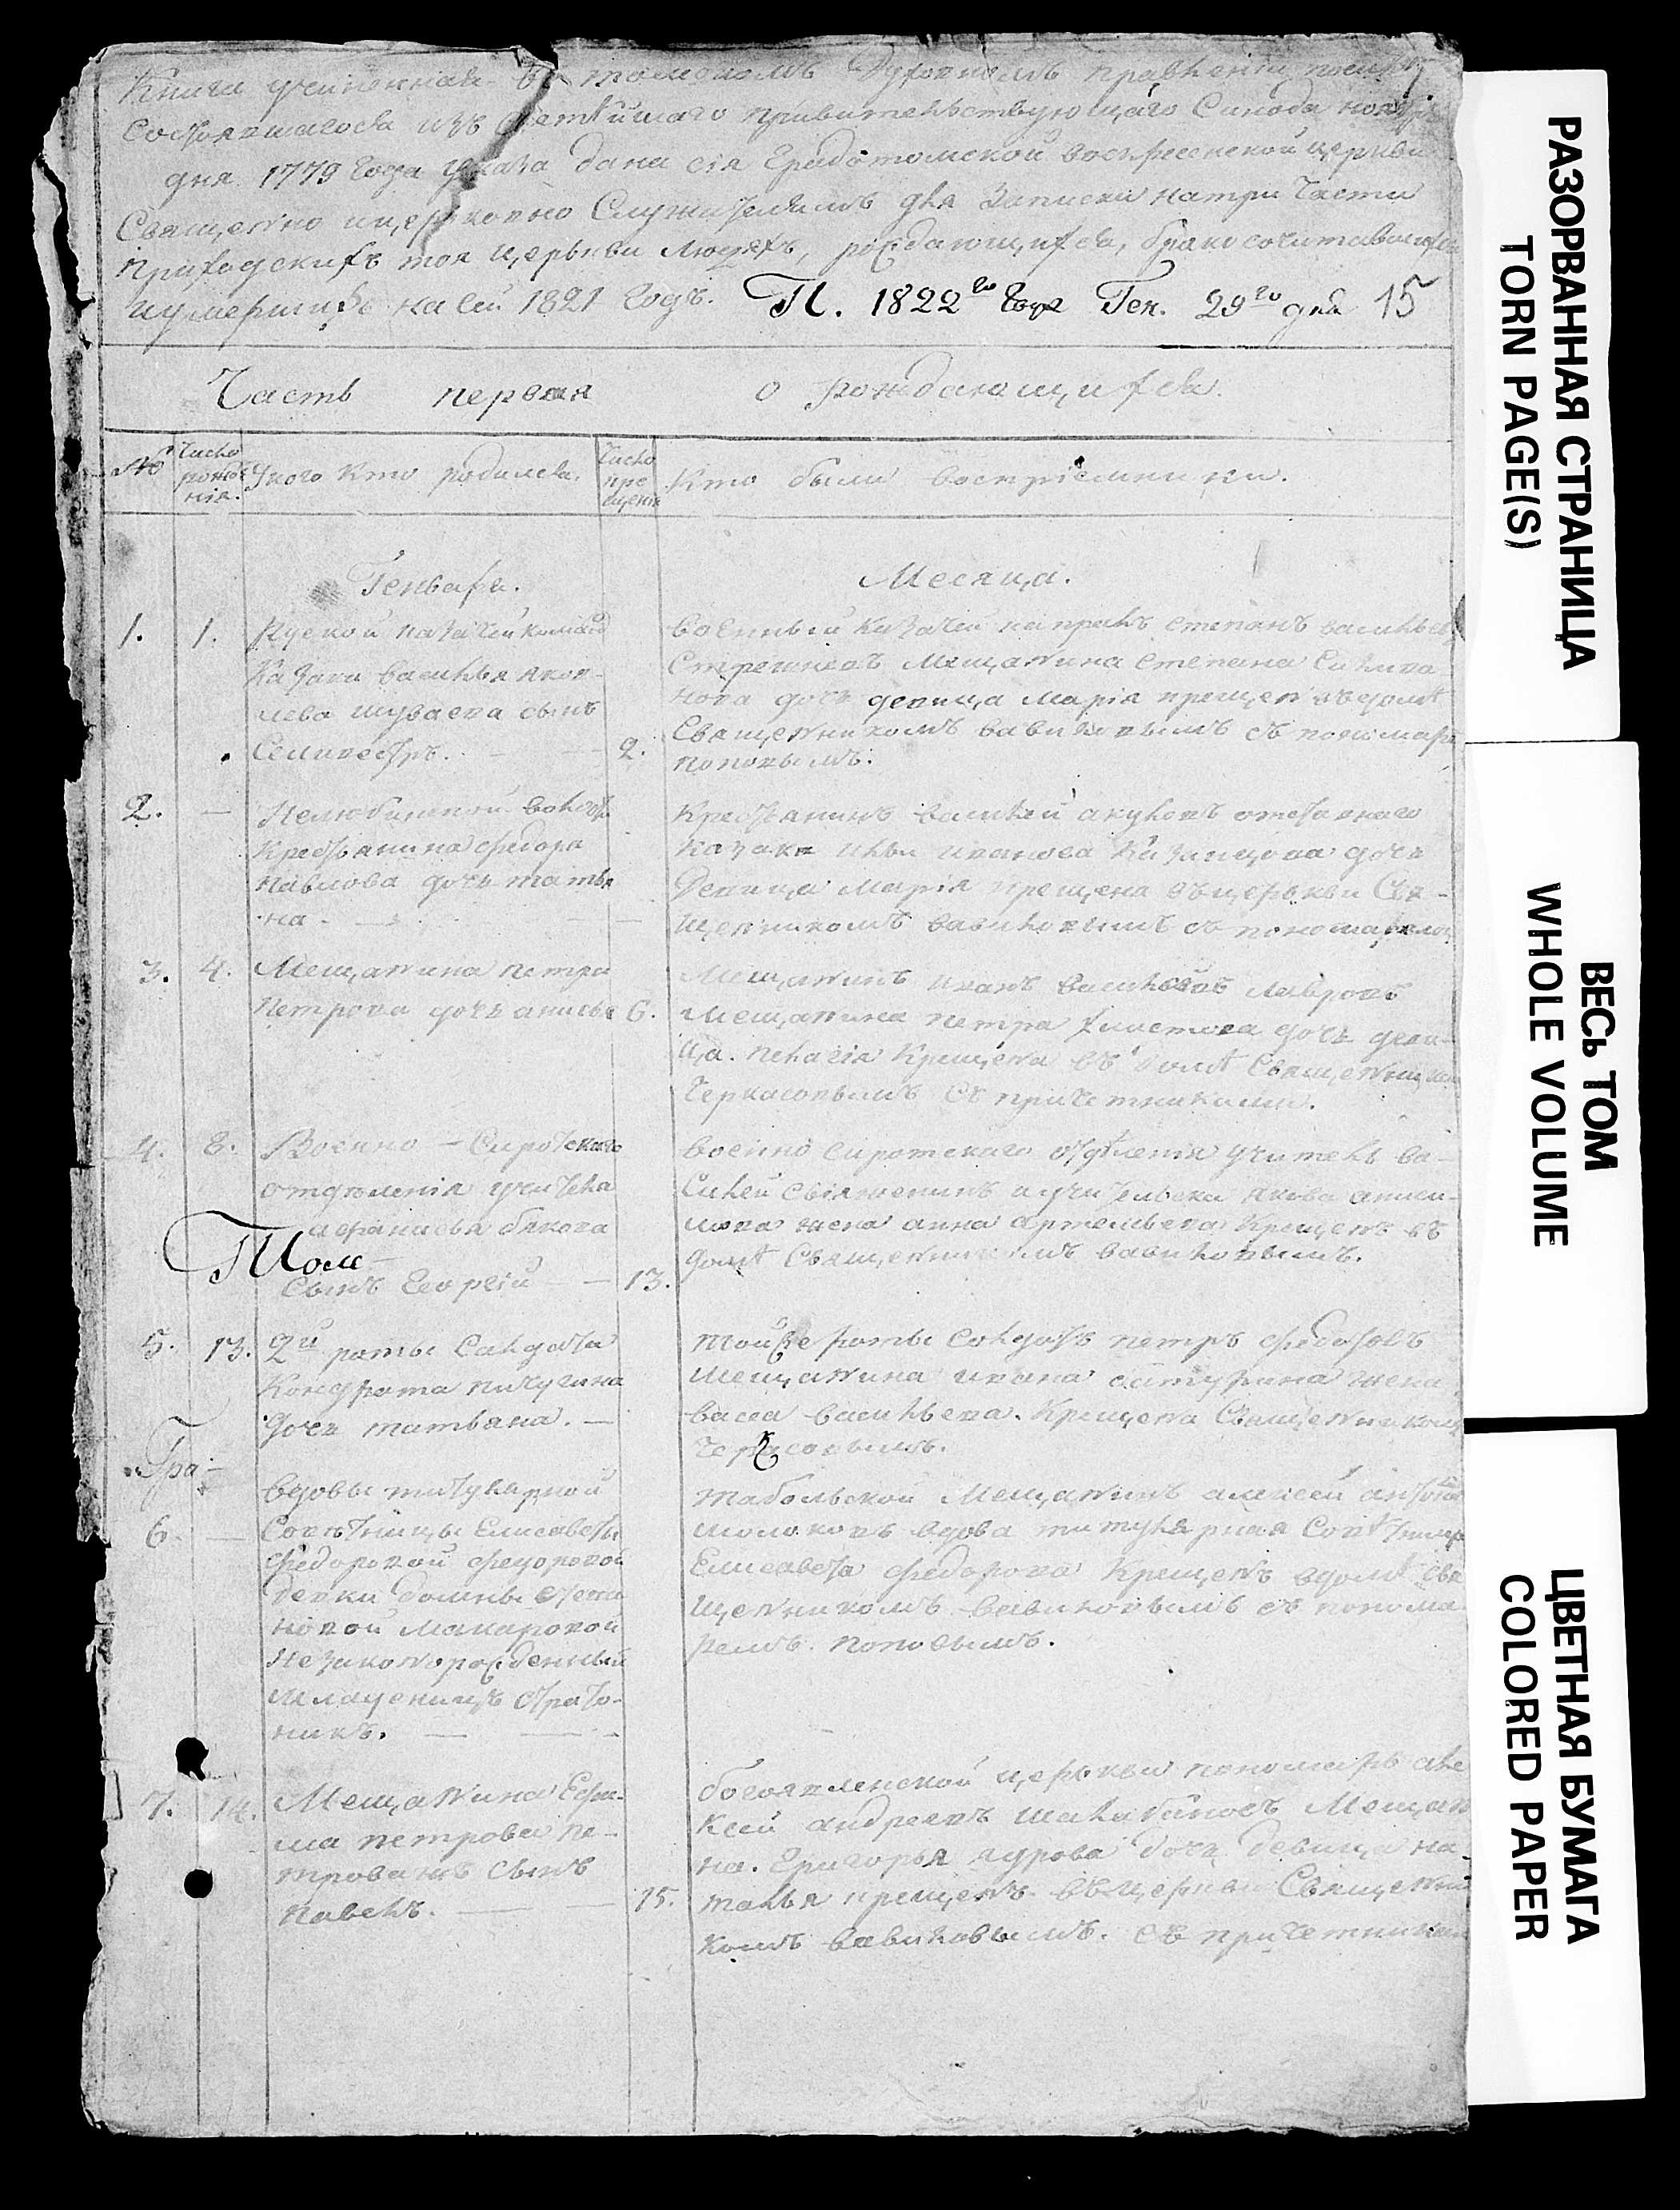 Книга учиненная въ томскомъ духовномъ правленіи
состоявшагося изъ святѣйшаго правительствующаго Синода
дня 1779 года указа дана сія градотомской воскресенской церкви
Священно и церковно служителямъ для записки на три части
приходскихъ тоя церькви людяхъ, рождающихся, бракосочитавшихся
и умершихъ на сей 1821 годъ. П. 1822го Года Ген. 29го дня 15
Часть первая о рождающихся.
№ Число рожде нія. У кого кто родился. Число кре щенія Кто были воспріемники.
Генваря. Месяца.
1. 1. Руской казачей команды
казака василья яков-
лева шуваева сынъ
Селивестръ. 2.
военный казачей капралъ степанъ васильев
Стрелковъ мещанина степана
дочь девица марія крещен в домѣ
Священникомъ вавиловымъ съ понамаре
поповымъ.
2. — Нелюбинской волости
крестьянина федора
павлова дочь татья
на — —
крестьянинъ василей акуловъ отставнаго
казака ильи иванова казанцова дочь
девица марія крещена въ церькви Свя-
щенникомъ вавиловымъ съ пономаремъ
3. 4. Мещанина петра
петрова дочь анисья 6.
Мещанинъ иванъ васильевъ лавровъ
мещанина петра дочь деви-
ца. пелагія крещена въ домѣ Священником
Черкасовымъ съ причетниками.
4. 8. Военно-Сиротскаго
отделенія учителя
афанасья быкова
Том-
сынъ Георгій — — 13.
военно сиротскаго отдѣленія учитель ва-
силей и учительски якова
жена анна артемьева крещенъ въ
домѣ Священникомъ вавиловымъ.
5. 13. 2й роты Салдата
Кондрата пичугина
дочь татьяна. —
Гра-
той же роты солдатъ петръ федоровъ
мещанина ивана батурина жена
васса васильева. Крещена Священником
Черкасовымъ.
6. — вдовы титулярной
Совѣтницы Елисаветы
Федоровой федоровой
девки домны степа
новой макаровой
незаконорожденный
младенецъ страто-
никъ. —
табольской мещанинъ алексей антонов
молоковъ вдова титулярная Совѣтница
Елисавета федорова крещенъ в домѣ свя
щенникомъ вавиловымъ съ понома
ремъ поповымъ.
7. 14. Мещанина Ефи-
ма петрова пе-
трованъ сынъ
павелъ. — — 15.
богоявленской церькви пономарь але
ксей андреевъ шалабановъ мещани
на. Григорья ядрова дочь девица на-
талья крещенъ въ церкви Священни
комъ вавиловымъ. съ причетникам
РАЗОРВАННАЯ СТРАНИЦА
TORN PAGE(S)
ВЕСЬ ТОМ
WHOLE VOLUME
ЦВЕТНАЯ БУМАГА
COLORED PAPER